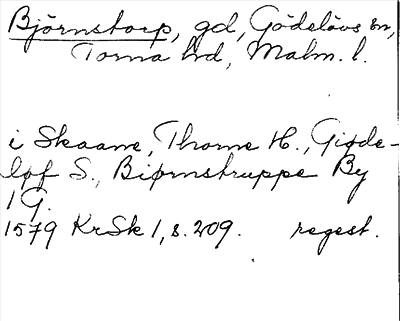 Björnstorp, gd, Gödelövs sn,
Torna hd, Malm. l.
i Skaane, Thorne H., Giøde-
løf S., Biørnstruppe By
1 G.
1579 KrSk 1, s. 209. regest.